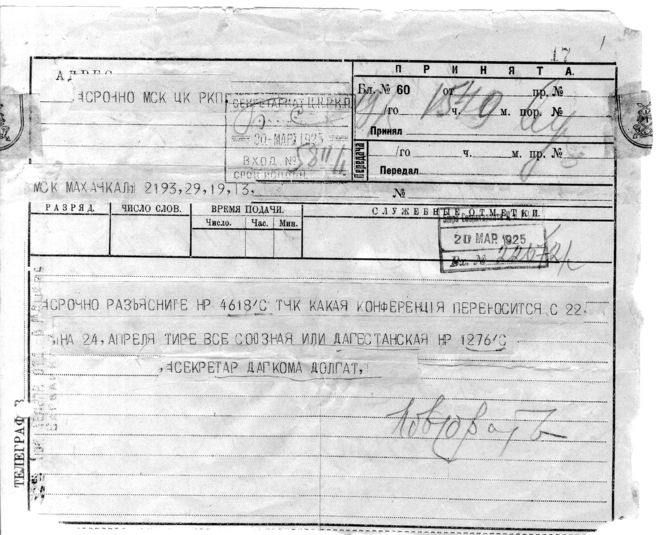 17
АДРЕС
П Р И Н Я Т А.
СРОЧНО МСК ЦК РКП
Бл. № 60 от пр. №
/го ч. м. пор. №
Принял
СЕКРЕТАРИАТ Ц.К.Р.К.П.
20 МАР 1925
ВХОД. №
Передача
/го ч. м. пр. №
Передал
МСК МАХАЧКАЛЫ 2193,29,19,13,
№
РАЗРЯД. ЧИСЛО СЛОВ. ВРЕМЯ ПОДАЧИ. СЛУЖЕБНЫЕ ОТМЕТКИ.
Число. Час. Мин.
20 МАР 1925
Вх. №
СРОЧНО РАЗЪЯСНИТЕ НР 4618/С ТЧК КАКАЯ КОНФЕРЕНЦІЯ ПЕРЕНОСИТСЯ С 22
НА 24, АПРЕЛЯ ТИРЕ ВСЕ СОЮЗНАЯ ИЛИ ДАГЕСТАНСКАЯ НР 1276/С
СЕКРЕТАР ДАГКОМА ДОЛГАТ,
ТЕЛЕГРАФ